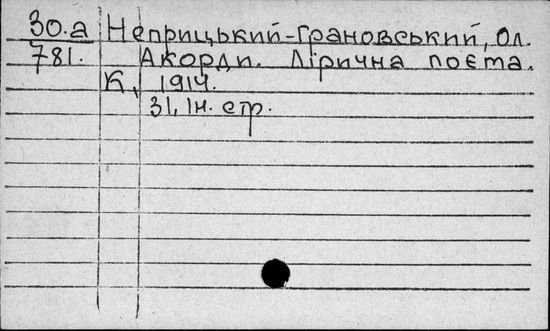 30.а Неприцький-Грановський, Ол.
781. Акорди. Лірична поєта.
К, 1914.
31, Ін. стр.